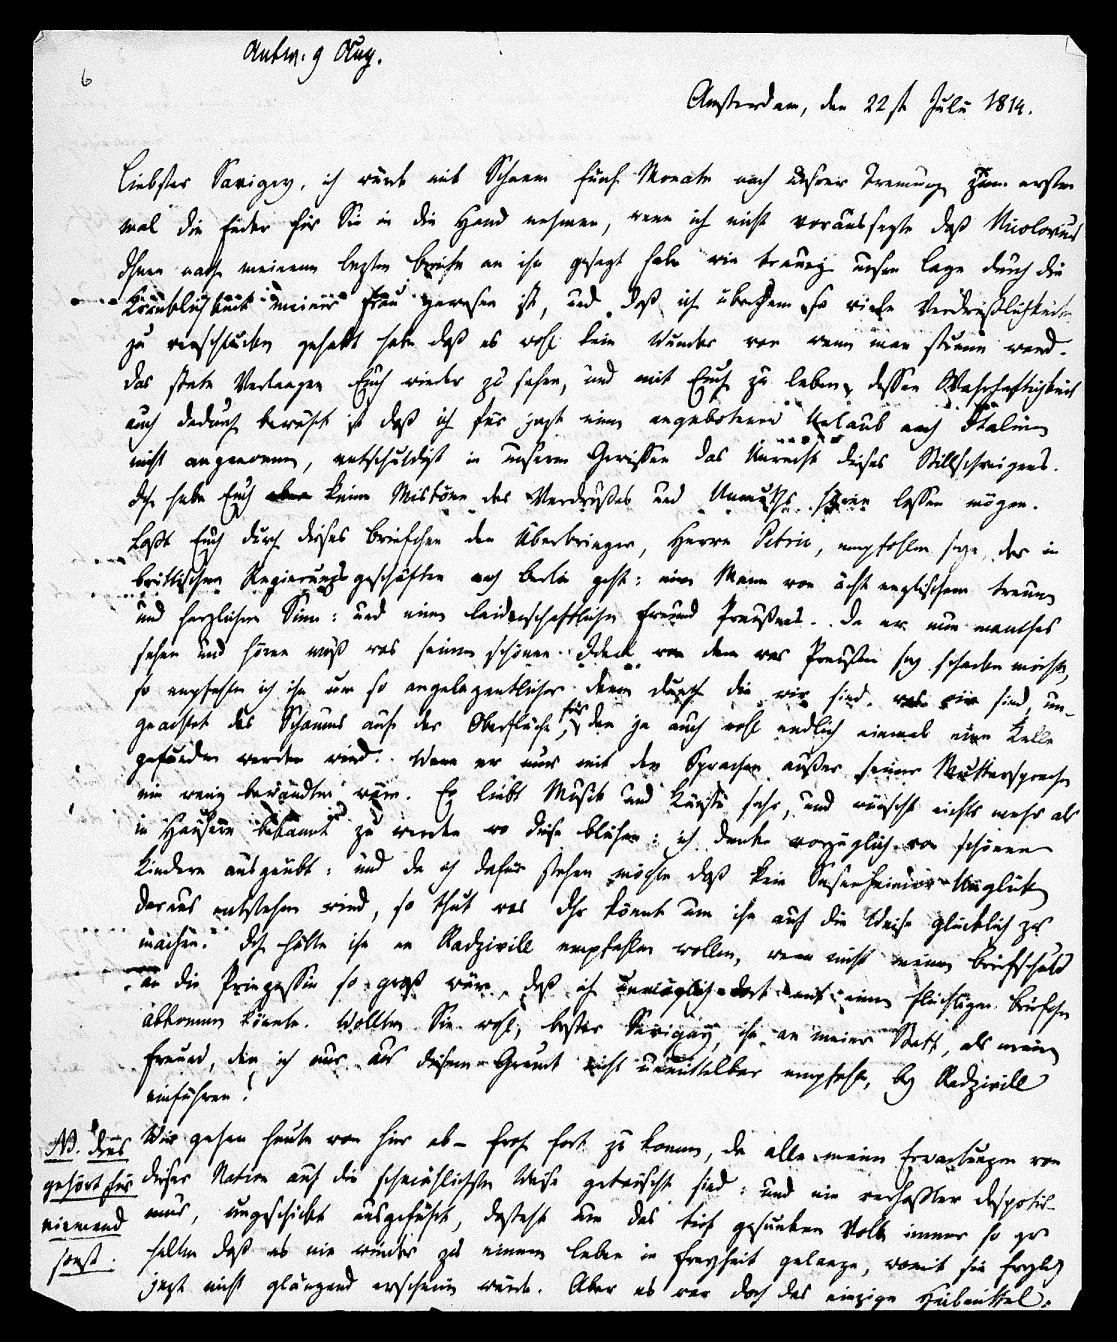 Antw: 9 Aug.
6
Amsterdam, den 22st July 1814.
Liebster Savigny, ich würde mit Schaam fünf Monate nach unsrer Trennung zum ersten
mal die Feder für Sie in die Hand nehmen, wenn ich nicht voraussezte daß Nicolovius
Ihnen nach meinem lezten Briefe an ihn gesagt habe wie traurig unsre Lage durch die
Kränklichkeit meiner Frau gewesen ist, und daß ich überdem so viele Verdrieslichkeiten
zu verschlucken gehabt habe daß es wohl kein Wunder war wenn man stumm ward.
Das stete Verlangen Euch wieder zu sehen, und mit Euch zu leben, dessen Wahrhaftigkeit
auch dadurch bewährt ist daß ich für jezt einen angebotenen Urlaub nach Italien
nicht angenommen, entschuldigt in unserm Gewissen das Unrecht dieses Stillschweigens.
Ich habe Euch keine Mistöne des Verdrußes und Unmuths hören lassen mögen.
Laßt Euch durch dieses Briefchen den Überbringer, Herrn Petrie, empfohlen seyn, der in
brittischen Regierungsgeschäften nach Berlin geht: einen Mann von ächt englischem treuen
und herzlichen Sinn: und einen leidenschaftlichen Freund Preußens. Da er nun manches
sehen und hören muß was seinem schönen Ideal von dem was Preußen sey schaden möchte,
so empfehle ich ihn um so angelegentlicher denen durch die wir sind was wir sind, un-
geachtet des Schaums auf der Oberfläche, für den ja auch wohl endlich einmal eine Kelle
gefunden werden wird. Wenn er nur mit den Sprachen außer seiner Muttersprache
ein wenig bewandter wäre. Er liebt Musik und Künste sehr, und wünscht nichts mehr als
in Häusern bekannt zu werden wo diese blühen: ich denke vorzüglich von schönen
Kindern ausgeübt: und da ich dafür stehen möchte daß kein Sesenheimer Unglück
daraus entstehen wird, so thut was Ihr könnt um ihn auf die Weise glücklich zu
machen. Ich hätte ihn an Radzivill empfehlen wollen, wenn nicht meine Briefschuld
an die Prinzessin so groß wäre, daß ich unmöglich dort auf einen flüchtigen Briefchen
abkommen könnte. Wollten Sie wohl, bester Savigny, ihn an meiner Statt, als meinen
Freund, den ich nur aus diesem Grund nicht unmittelbar empfehle, bey Radzivill
einführen!
Wir gehen heute von hier ab – froh fort zu kommen, da alle meine Erwartungen von
dieser Nation auf die schmählichste Weise getäuscht sind: und ein verhaßter Despotis-
mus, ungeschickt ausgeführt, dasteht um das tief gesunkene Volk immer so zu
halten daß es nie wieder zu einem Leben in Freyheit gelange, womit sie freylich
jezt nicht glänzend erscheinen würde. Aber es war doch das einzige Heilmittel:
NB. dies
gehört für
niemand
sonst.